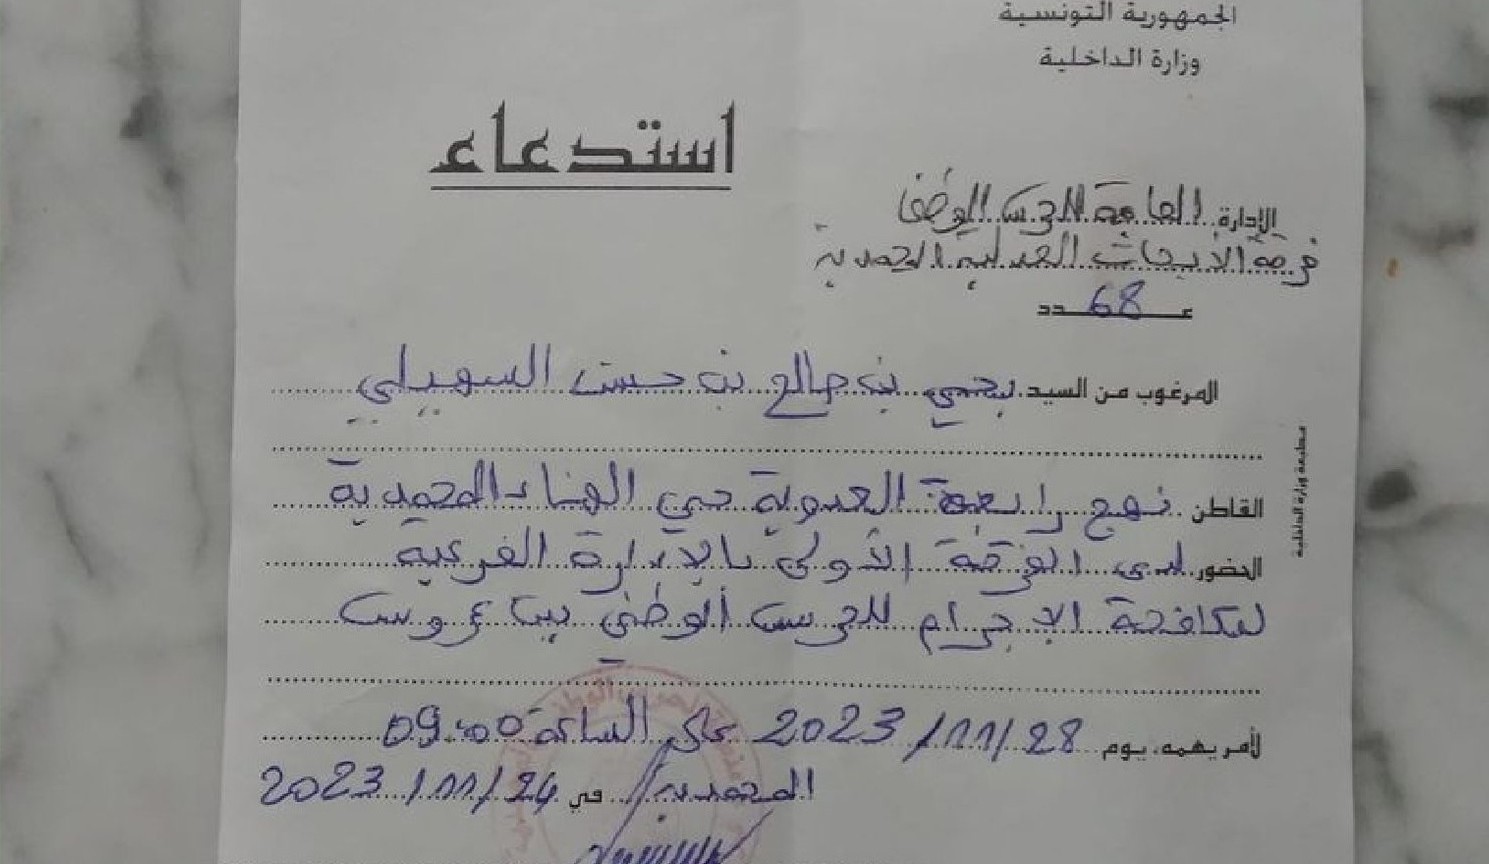 الجمهورية التونسية
وزارة الداخلية
استدعاء
الإدارة العامة للحرس الوطني
فرقة الأبحاث العدلية المحمدية
عـ 68 ـدد
المرغوب من السيد يحيى بن صالح بن حسن السهيلي
القاطن نهج رابعة العدوية حي الهناء المحمدية
الحضور لدى الفرقة الأولى بالإدارة الفرعية
لمكافحة الإجرام للحرس الوطني ببن عروس
لأمر يهمه، يوم 28/11/2023 على الساعة 09.00
المحمدية في 24/11/2023
مطبعة وزارة الداخلية